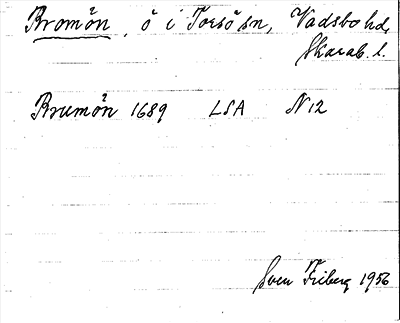 Bromön, ö i Torsö sn, Vadsbo hd,
Skarab. l.
Brumön 1689 LSA N12
Sven Friberg 1956